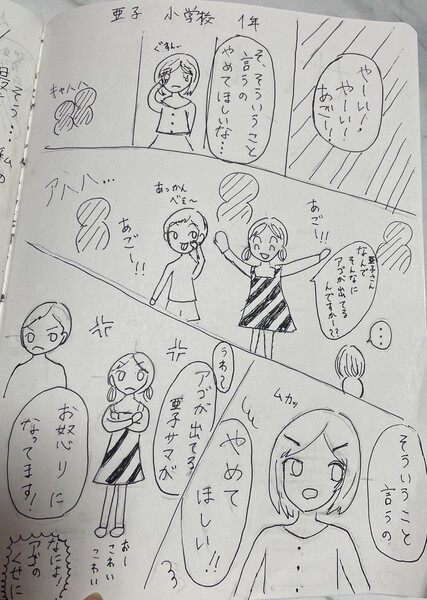 亜子 小学校 1年
やーい!
やーい!
あごー!
そ、そういうこと
言うの
やめてほしいな…
ぐすん…
キャハハ
あごー!!
亜子さん
なんで
そんなに
アゴが出てる
んですか〜??
あっかん
べぇ〜
あごー!!
アハハ…
…
そういうこと
言うの
ムカッ
やめて
ほしい!!
うわ〜
アゴが出てる
亜子サマが
お怒りに
なってます!
おー
こわい
こわい
なによ!
アゴの
くせに
そう…私の